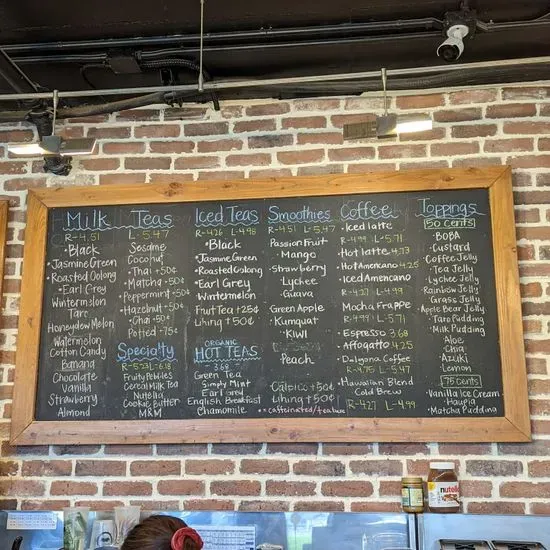 Milk Teas
R-4.51 L-5.47
• Black
• Jasmine Green
• Roasted Oolong
• Earl Grey
Wintermelon
Taro
Honeydew Melon
Watermelon
Cotton Candy
Banana
Chocolate
Vanilla
Strawberry
Almond
Sesame
Coconut
• Thai +50¢
• Matcha +50¢
Peppermint +50¢
Hazelnut +50¢
• Chai +50¢
Potted +75¢
Specialty
R-5.23 L-6.18
Fruity Pebbles
Cereal Milk Tea
Nutella
Cookie Butter
M&M
Iced Teas
R-4.26 L-4.98
• Black
• Jasmine Green
• Roasted Oolong
• Earl Grey
Wintermelon
Fruit Tea +25¢
Lihing +50¢
ORGANIC
HOT TEAS
3.68
Green Tea
Simply Mint
Earl Grey
English Breakfast
Chamomile
Smoothies
R-4.51 L-5.47
Passion Fruit
Mango
Strawberry
Lychee
Guava
Green Apple
Kumquat
Kiwi
Peach
Calpico +50¢
Lihing +50¢
• = caffeinated/tea base
Coffee
Iced latte
R-4.99 L-5.71
Hot latte 4.73
Hot Americano 4.25
Iced Americano
R-4.27 L-4.99
Mocha Frappe
R-4.99 L-5.71
Espresso 3.68
Affogatto 4.25
Dalgona Coffee
R-4.75 L-5.47
Hawaiian Blend
Cold Brew
R-4.27 L-4.99
Toppings
50 Cents
BOBA
Custard
Coffee Jelly
Tea Jelly
Lychee Jelly
Rainbow Jelly
Grass Jelly
Apple Bear Jelly
• Taro Pudding
• Milk Pudding
Aloe
Chia
Azuki
Lemon
75 Cents
Vanilla Ice Cream
• Haupia
• Matcha Pudding
nutella